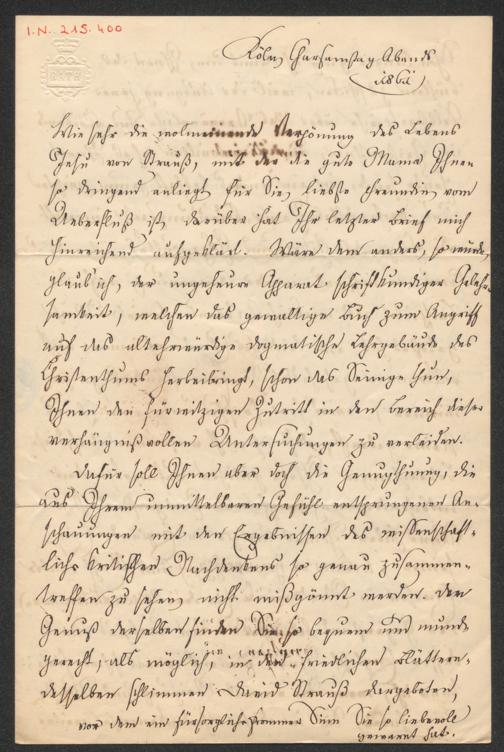 I.N. 215.400
BATH
Köln, Charsamstag Abends
1861
Wie sehr die wolmeinende Verpönung des Lebens
Jesu von Strauß, mit der die gute Mama Ihnen
so dringend anliegt für Sie, liebste Freundin vom
Ueberfluß ist, darüber hat Ihr letzter Brief mich
hinreichend aufgeklärt. Wäre dem anders, so würde,
glaub' ich, der ungeheure Apparat schriftkundiger Gelehr-
samkeit, welchen das gewaltige Buch zum Angriff
auf das altehrwürdige dogmatische Lehrgebäude des
Christenthums herbeibringt, schon das Seinige thun,
Ihnen den fürwitzigen Zutritt in den Bereich dieser
verhängnißvollen Untersuchungen zu verleiden.
Dafür soll Ihnen aber doch die Genugthuung, die
aus Ihrem unmittelbaren Gefühl entsprungenen An-
schauungen mit den Ergebnissen des wissenschaft-
lich kritischen Nachdenkens so genau zusammen-
treffen zu sehen, nicht mißgönnt werden. Den
Genuß derselben finden Sie so bequem und mund-
gerecht, als möglich, in den friedlichen Blättern
desselben schlimmen David Strauß dargeboten,
vor dem ein fürsorglich frommer Sinn Sie so liebevoll
gewarnt hat.